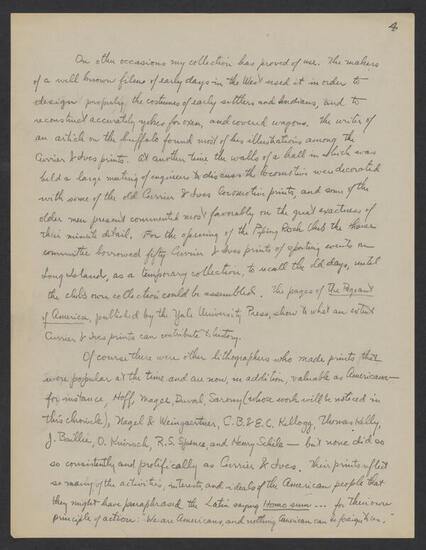 4
On other occasions my collection has proved of use. The makers
of a well known film of early days in the West used it in order to
design properly, the costumes of early settlers and Indians, and to
reconstruct accurately yokes for oxen, and covered wagons. The writer of
an article on the buffalo found most of his illustrations among the
Currier & Ives prints. At another time the walls of a hall in which was
held a large meeting of engineers to discuss the locomotive were decorated
with some of the old Currier & Ives locomotive prints, and some of the
older men present commented most favorably on the great exactness of
their minute detail. For the opening of the Piping Rock Club the house
committee borrowed fifty Currier & Ives prints of sporting events on
Long Island, as a temporary collection, to recall the old days, until
the club's own collection could be assembled. The pages of The Pageant
of America, published by the Yale University Press, show to what an extent
Currier & Ives prints can contribute to history.
Of course there were other lithographers who made prints that
were popular at the time and are now, in addition, valuable as Americana—
for instance, Hoff, Nagel, Duval, Sarony (whose work will be noticed in
this chronicle), Nagel & Weingaertner, C.B. & E.C. Kellogg, Thomas Kelly,
J. Baillie, O. Knirsch, R.S. Spence, and Henry Schile — but none did so
so consistently and prolifically as Currier & Ives. Their prints reflect
so many of the activities, interests, and ideals of the American people that
they might have paraphrased the Latin saying Homo sum ... for their own
principle of action: "We are Americans, and nothing American can be foreign to us."